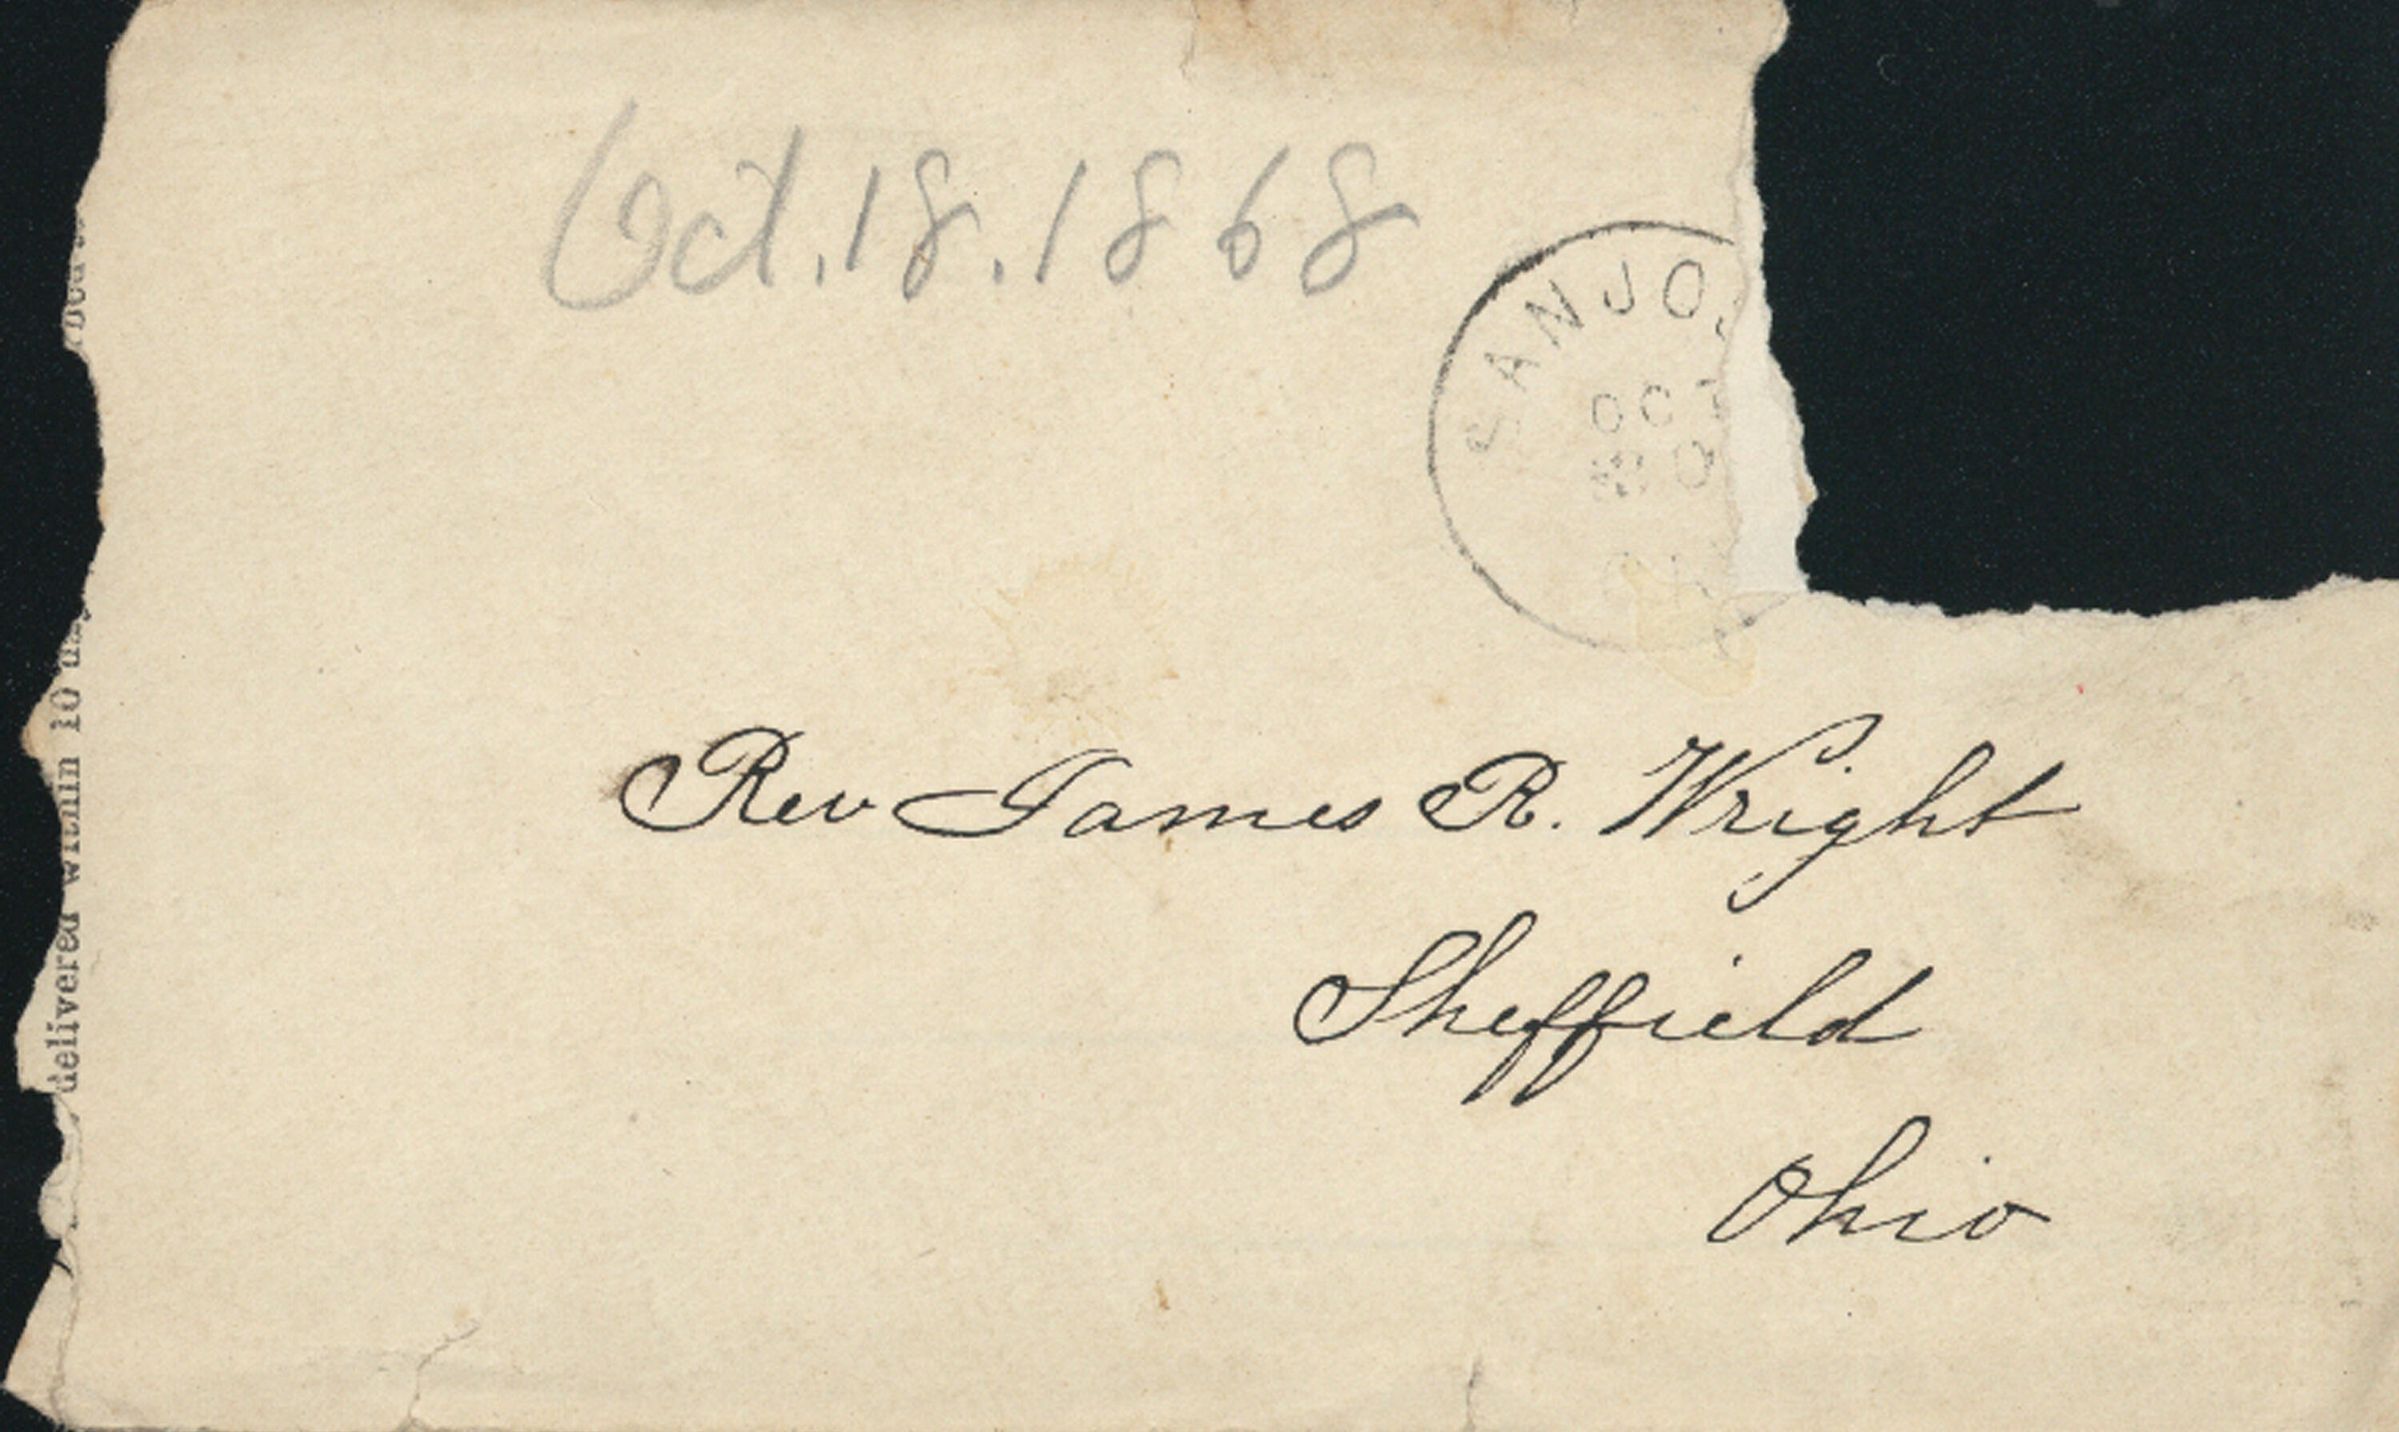 Oct. 18. 1868
SAN JOS
OC
Rev James R. Wright
Sheffield
Ohio
delivered within 10